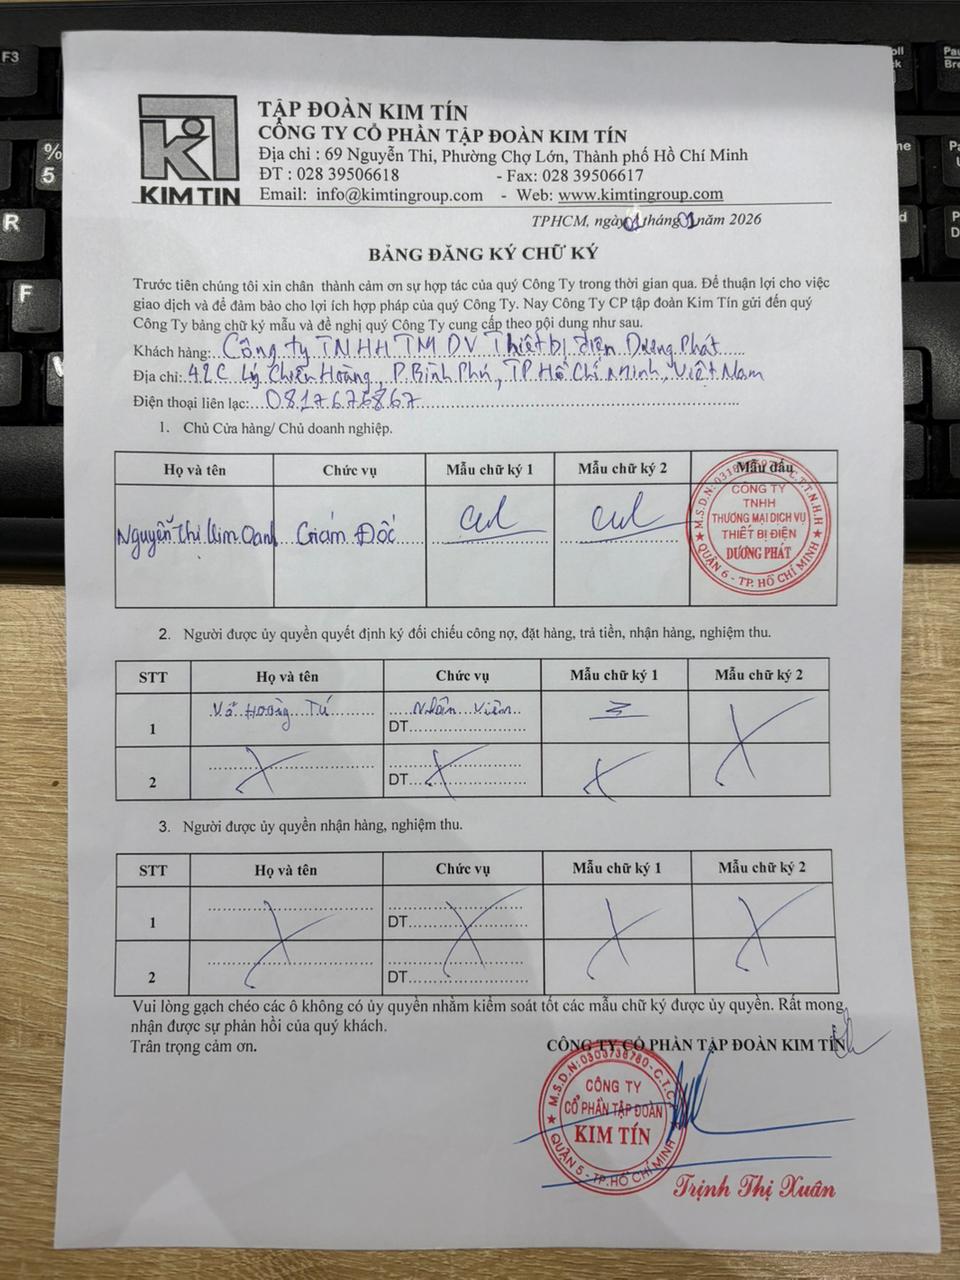 TẬP ĐOÀN KIM TÍN
CÔNG TY CỔ PHẦN TẬP ĐOÀN KIM TÍN
Địa chỉ : 69 Nguyễn Thi, Phường Chợ Lớn, Thành phố Hồ Chí Minh
ĐT : 028 39506618 - Fax: 028 39506617
KIM TIN Email: info@kimtingroup.com - Web: www.kimtingroup.com
TPHCM, ngày 01 tháng 01 năm 2026
BẢNG ĐĂNG KÝ CHỮ KÝ
Trước tiên chúng tôi xin chân thành cảm ơn sự hợp tác của quý Công Ty trong thời gian qua. Để thuận lợi cho việc
giao dịch và để đảm bảo cho lợi ích hợp pháp của quý Công Ty. Nay Công Ty CP tập đoàn Kim Tín gửi đến quý
Công Ty bảng chữ ký mẫu và đề nghị quý Công Ty cung cấp theo nội dung như sau.
Khách hàng: Công ty TNHH TM DV Thiết bị điện Dương Phát
Địa chỉ: 42C Lý Chiêu Hoàng, P. Bình Phú, TP Hồ Chí Minh, Việt Nam
Điện thoại liên lạc: 0817675867
1. Chủ Cửa hàng/ Chủ doanh nghiệp.
Họ và tên Chức vụ Mẫu chữ ký 1 Mẫu chữ ký 2 Mẫu dấu
Nguyễn Thị Kim Oanh Giám Đốc
CÔNG TY
TNHH
THƯƠNG MẠI DỊCH VỤ
THIẾT BỊ ĐIỆN
DƯƠNG PHÁT
QUẬN 6 - TP. HỒ CHÍ MINH
2. Người được ủy quyền quyết định ký đối chiếu công nợ, đặt hàng, trả tiền, nhận hàng, nghiệm thu.
STT Họ và tên Chức vụ Mẫu chữ ký 1 Mẫu chữ ký 2
1 Võ Hoàng Tú Nhân Viên
DT
2 DT
3. Người được ủy quyền nhận hàng, nghiệm thu.
STT Họ và tên Chức vụ Mẫu chữ ký 1 Mẫu chữ ký 2
1 DT
2 DT
Vui lòng gạch chéo các ô không có ủy quyền nhằm kiểm soát tốt các mẫu chữ ký được ủy quyền. Rất mong
nhận được sự phản hồi của quý khách.
Trân trọng cảm ơn.
CÔNG TY CỔ PHẦN TẬP ĐOÀN KIM TÍN
M.S.D.N: 0303736780 - C.T.C
CÔNG TY
CỔ PHẦN TẬP ĐOÀN
KIM TÍN
QUẬN 5 - TP. HỒ CHÍ MINH
Trịnh Thị Xuân